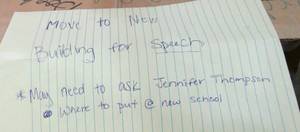 Move to New
Building for Speech
* May need to ask Jennifer Thompson
• Where to put @ new school